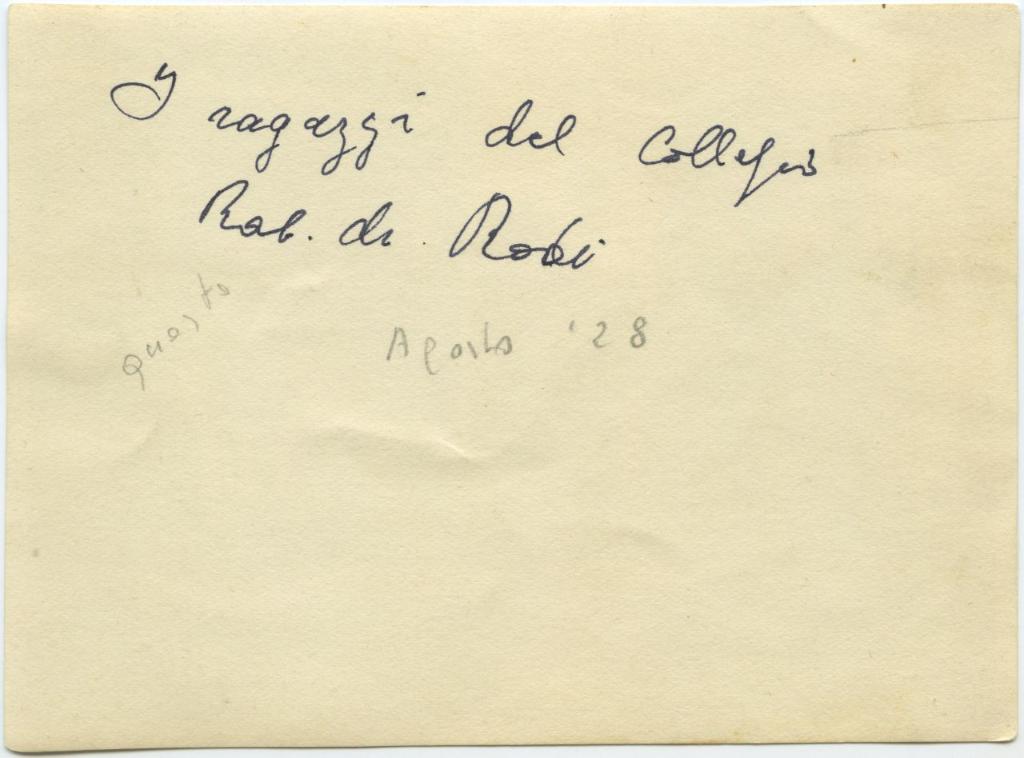 I ragazzi del Collegio
Rab. di Rodi
questo
Agosto '28